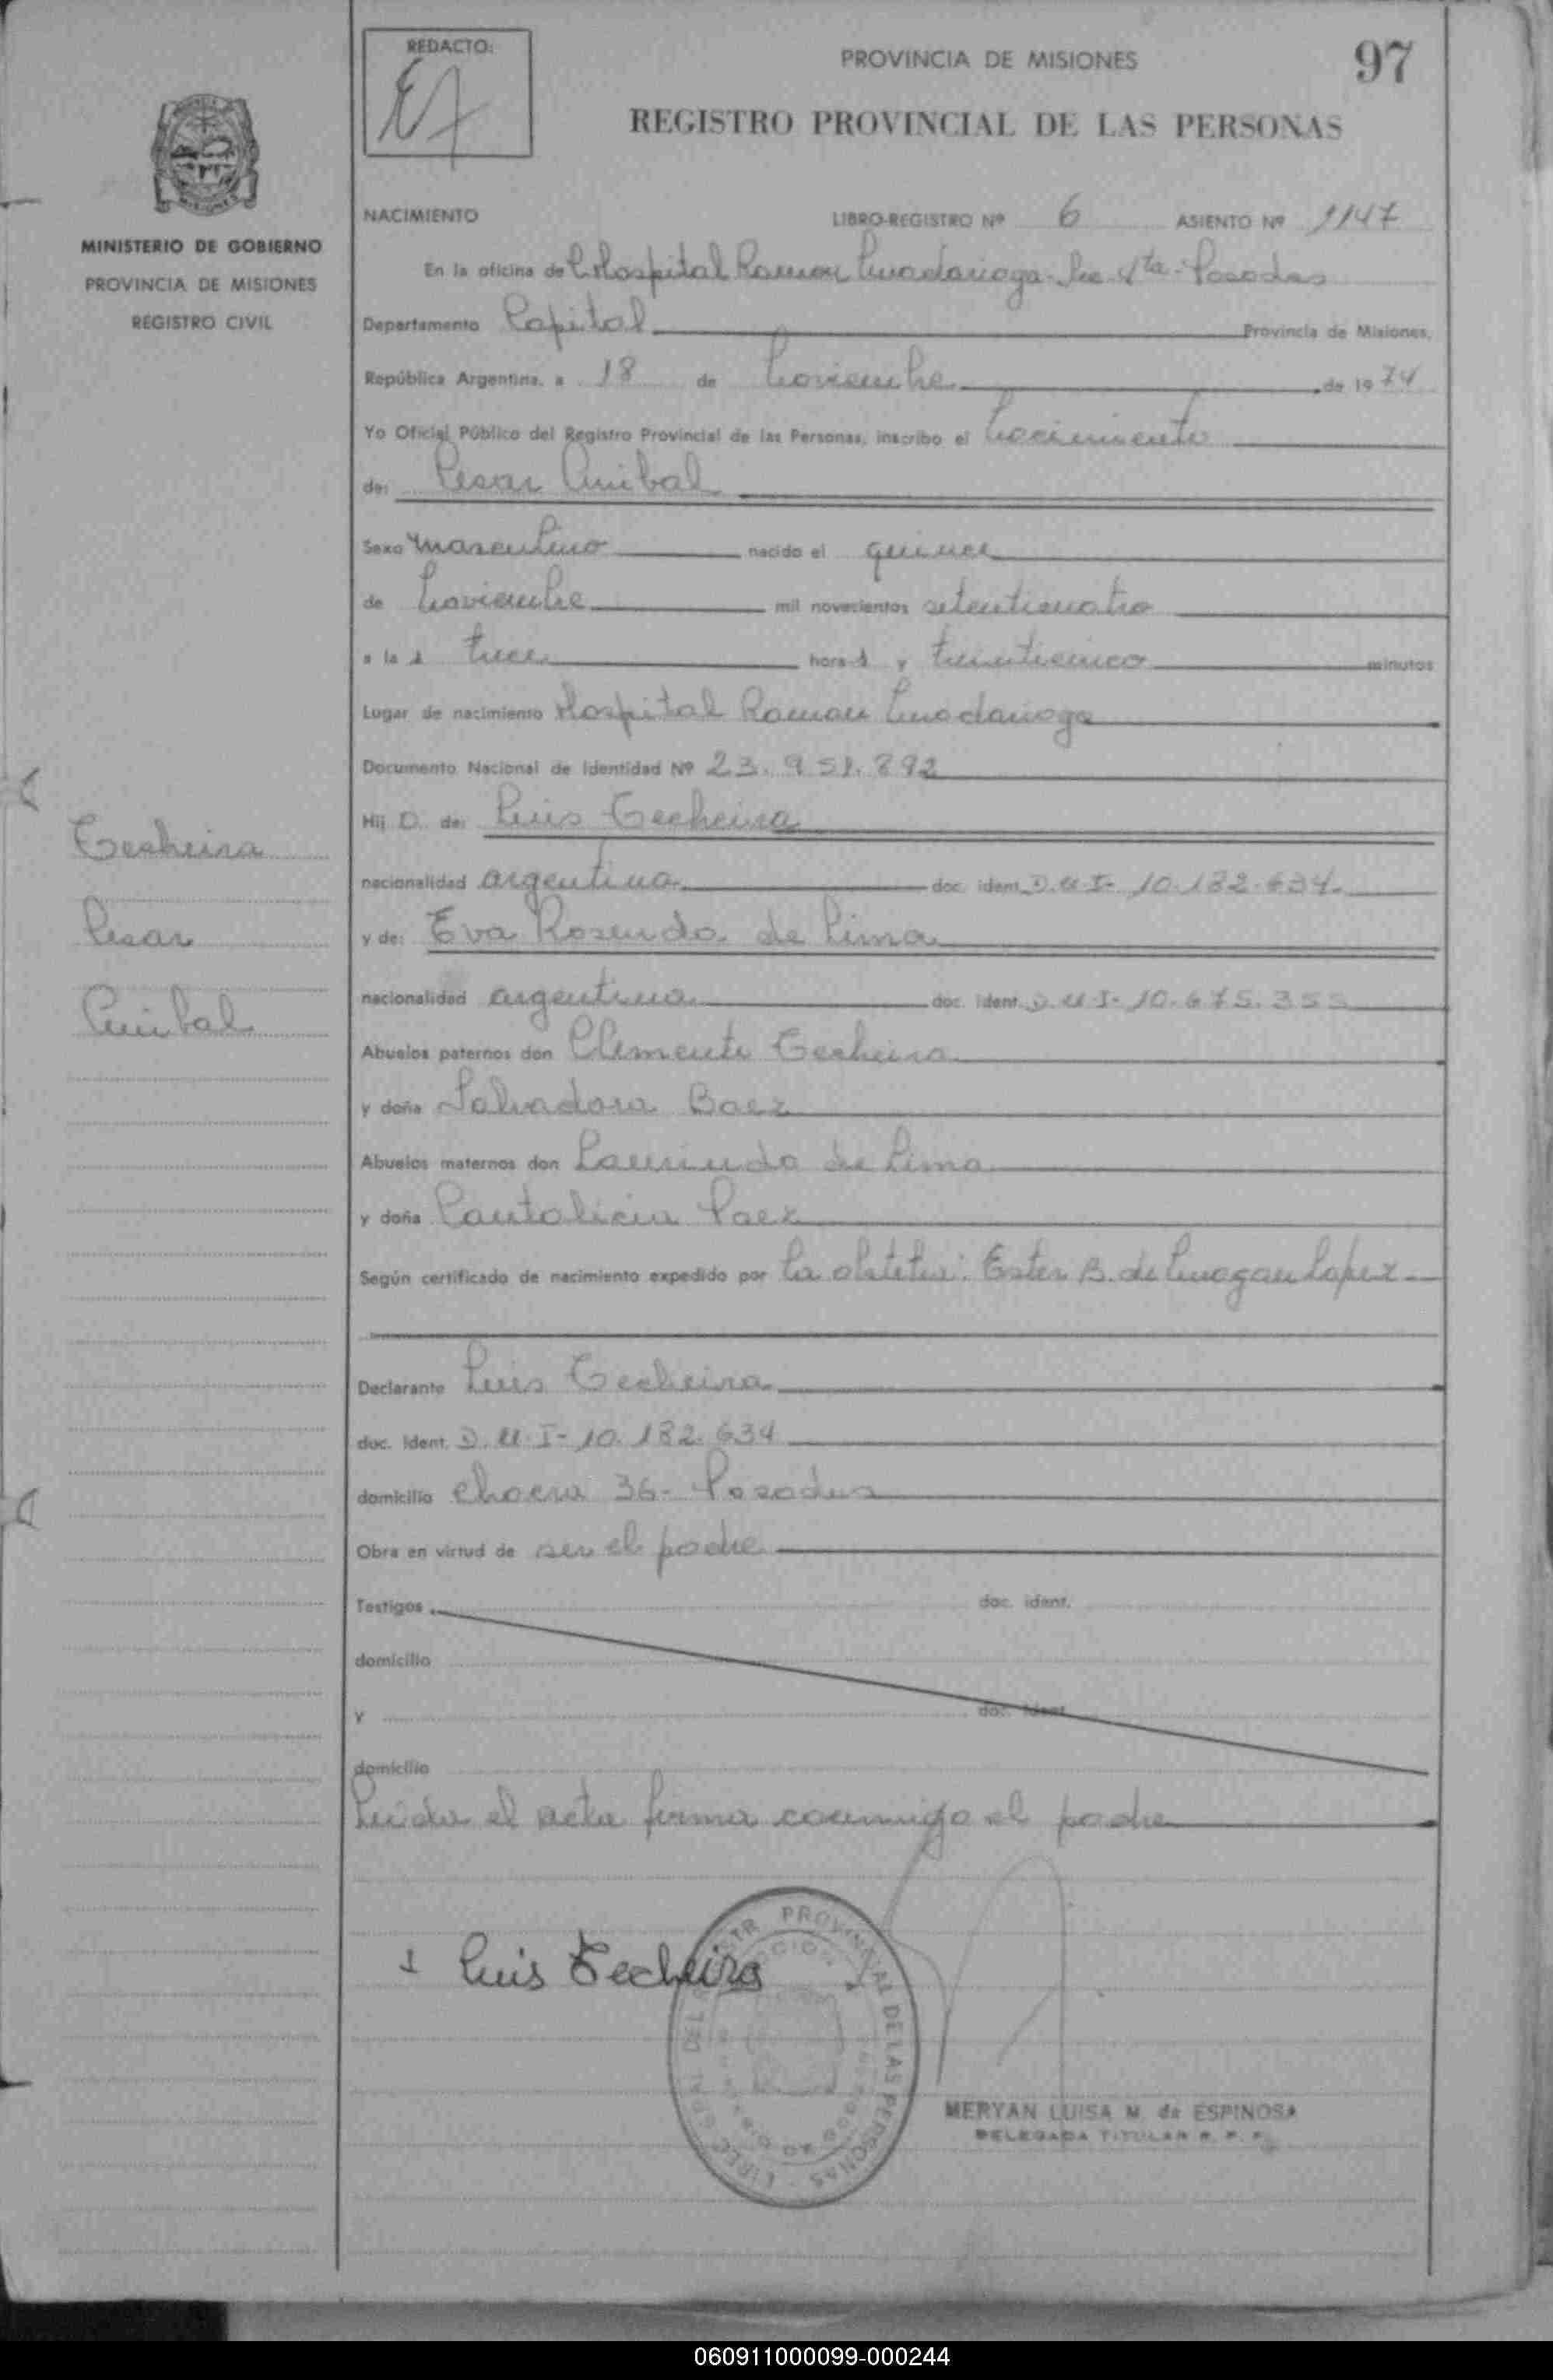 REDACTO:
PROVINCIA DE MISIONES
97
REGISTRO PROVINCIAL DE LAS PERSONAS
MINISTERIO DE GOBIERNO
PROVINCIA DE MISIONES
REGISTRO CIVIL
NACIMIENTO LIBRO-REGISTRO Nº 6 ASIENTO Nº 1147
En la oficina de Hospital Ramon Madariaga Posadas
Departamento Capital Provincia de Misiones,
República Argentina, a 18 de Noviembre de 1974
Yo Oficial Público del Registro Provincial de las Personas, inscribo el Nacimiento
de: Cesar Anibal
Sexo Masculino nacido el quince
de Noviembre mil novecientos setenticuatro
a la s trece hora s y treinticinco minutos
Lugar de nacimiento Hospital Ramon Madariaga
Documento Nacional de Identidad Nº 23.951.892
Hij o de: Luis Techeira
nacionalidad argentina doc. ident. D.U.I- 10.182.634
y de: Eva Rosenda de Lima
nacionalidad argentina doc. ident. D.U.I- 10.675.355
Abuelos paternos don Clemente Techeira
y doña Salvadora Baez
Abuelos maternos don Laurindo de Lima
y doña Pantalicia Paez
Según certificado de nacimiento expedido por La obstetra: Ester B. de Lopez
Declarante Luis Techeira
doc. ident. D.U.I- 10.182.634
domicilio Chacra 36- Posadas
Obra en virtud de ser el padre
Testigos doc. ident.
domicilio
y doc. ident.
domicilio
Leida el acta firma conmigo el padre
Techeira
Cesar
Anibal
Luis Techeira
MERYAN LUISA M. de ESPINOSA
DELEGADA TITULAR R. P. P.
060911000099-000244